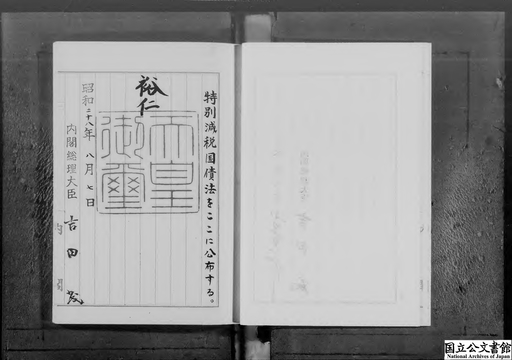 特別減税国債法をここに公布する。
裕仁
天皇
御璽
昭和二十八年八月七日
内閣総理大臣 吉田茂
国立公文書館
National Archives of Japan